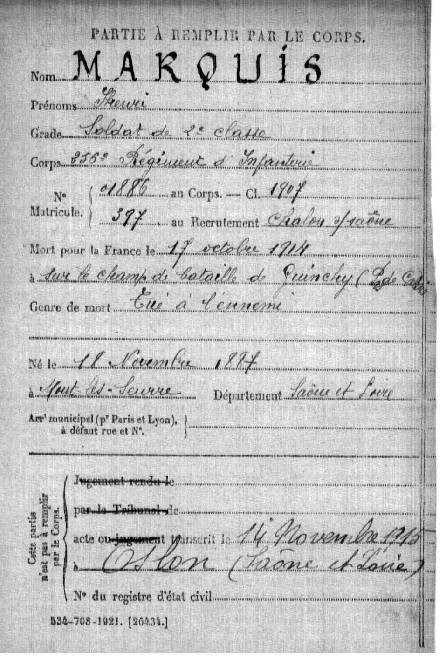 PARTIE À REMPLIR PAR LE CORPS.
Nom MARQUIS
Prénoms Henri
Grade Soldat de 2e classe
Corps 256e Régiment d'Infanterie
N° Matricule. { 01886 au Corps. — Cl. 1907
397 au Recrutement Chalon s/saône
Mort pour la France le 17 octobre 1914
à sur le champ de bataille de Quinchy (P. de Calais
Genre de mort Tué à l'ennemi
Né le 18 Novembre 1887
à Mont-les-Seurre Département Saône et Loire
Arrt municipal (pr Paris et Lyon), à défaut rue et N°. }
Cette partie n'est pas à remplir par le Corps. {
Jugement rendu le
par le Tribunal de
acte ou jugement transcrit le 14 Novembre 1915
à Oslon (Saône et Loire)
N° du registre d'état civil
534-708-1921. [26434.]